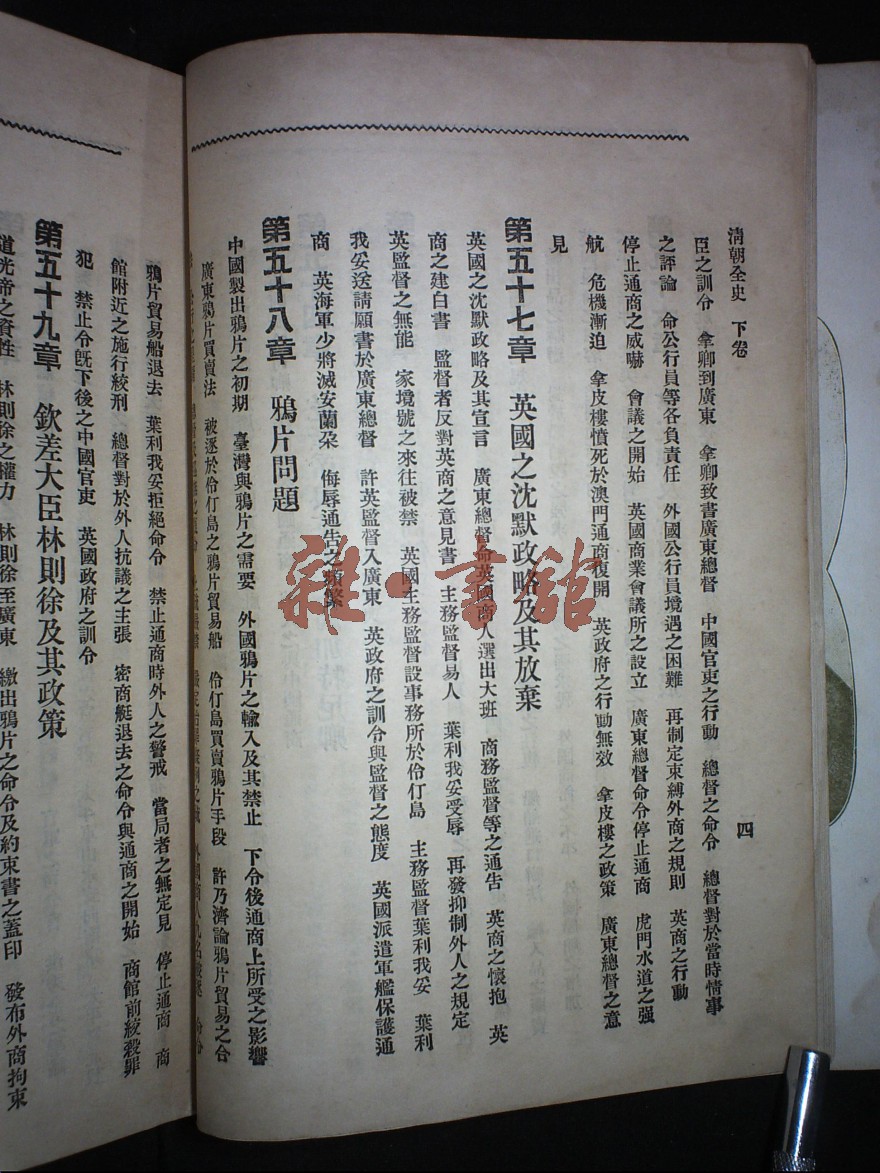 清朝全史 下卷
四
臣之訓令 拿卿到廣東 拿卿致書廣東總督 中國官吏之行動 總督之命令 總督對於當時情事
之評論 命公行員等各負責任 外國公行員境遇之困難 再制定束縛外商之規則 英商之行動
停止通商之威嚇 會議之開始 英國商業會議所之設立 廣東總督命令停止通商 虎門水道之强
航 危機漸迫 拿皮樓憤死於澳門通商復開 英政府之行動無效 拿皮樓之政策 廣東總督之意
見
第五十七章 英國之沈默政略及其放棄
英國之沈默政略及其宣言 廣東總督命英國商人選出大班 商務監督等之通告 英商之懷抱 英
商之建白書 監督者反對英商之意見書 主務監督易人 葉利我妥受辱 再發抑制外人之規定
英監督之無能 家境號之來往被禁 英國主務監督設事務所於伶仃島 主務監督葉利我妥 葉利
我妥送請願書於廣東總督 許英監督入廣東 英政府之訓令與監督之態度 英國派遣軍艦保護通
商 英海軍少將滅安蘭朶 侮辱通告之頻繁
第五十八章 鴉片問題
中國製出鴉片之初期 臺灣與鴉片之需要 外國鴉片之輸入及其禁止 下令後通商上所受之影響
廣東鴉片買賣法 被逐於伶仃島之鴉片貿易船 伶仃島買賣鴉片手段 許乃濟論鴉片貿易之合
鴉片貿易船退去 葉利我妥拒絕命令 禁止通商時外人之警戒 當局者之無定見 停止通商 商
館附近之施行絞刑 總督對於外人抗議之主張 密商艇退去之命令與通商之開始 商館前絞殺罪
犯 禁止令既下後之中國官吏 英國政府之訓令
第五十九章 欽差大臣林則徐及其政策
道光帝之資性 林則徐之權力 林則徐至廣東 繳出鴉片之命令及約束書之蓋印 發布外商拘束
雜·書館